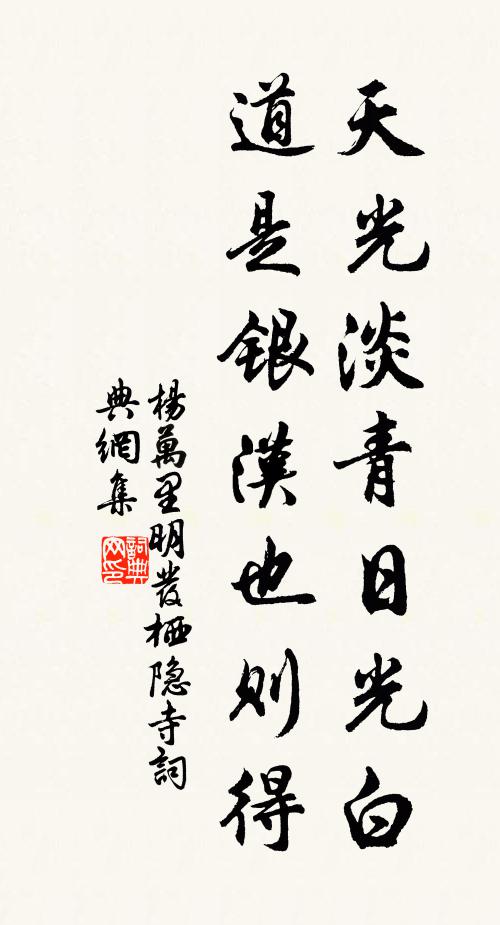 天光淡青日光白
道是銀漢也則得
楊萬里明發栖隐寺詞
典網集
詞典
网印